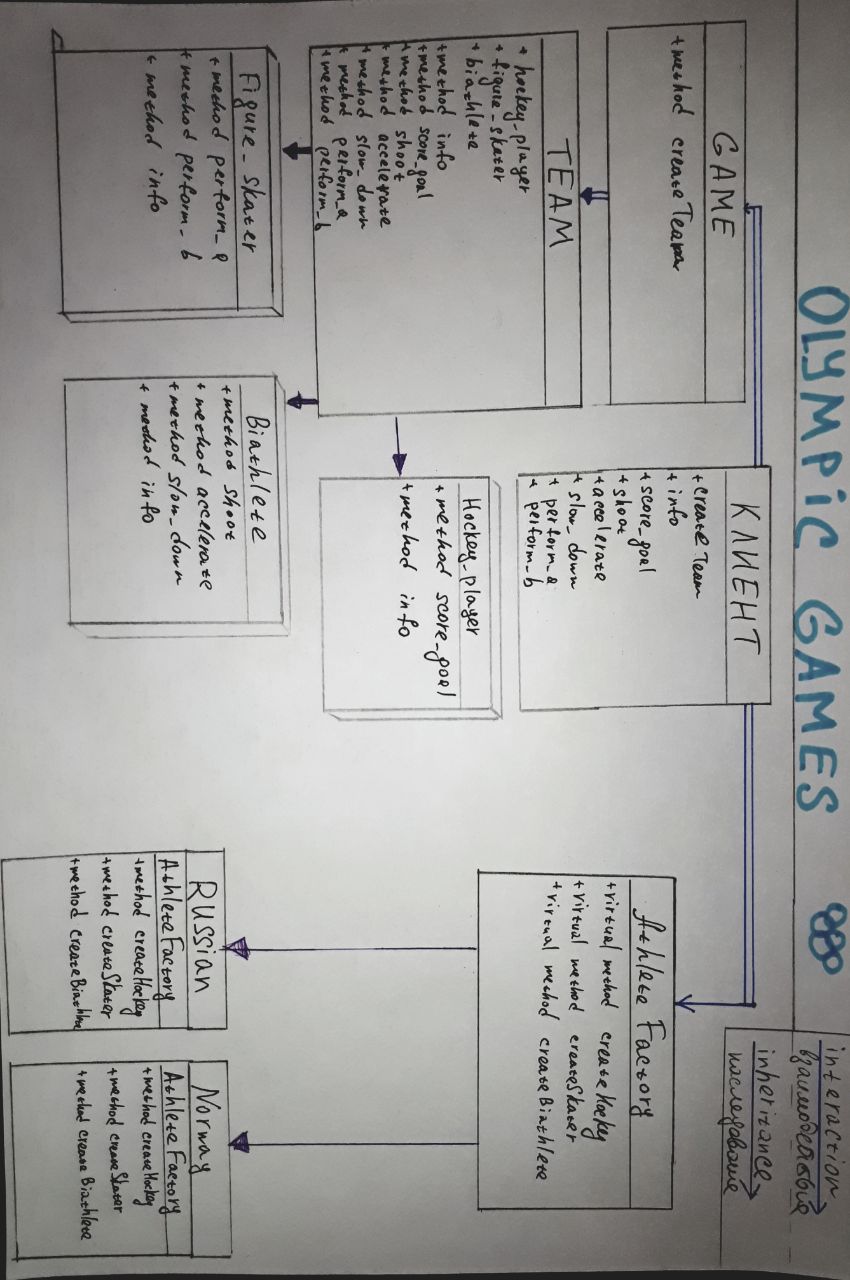 OLYMPIC GAMES
interaction
взаимодействие
inheritance
наследование
GAME
+method createTeam
КЛИЕНТ
+create Team
+info
+score_goal
+shoot
+accelerate
+slow_down
+ perform_a
+ perform_b
Athlete Factory
+virtual method createHockey
+virtual method createSkater
+virtual method createBiathlete
TEAM
+ hockey_player
+ figure_skater
+ biathlete
+method info
+method score_goal
+method shoot
+method accelerate
+method slow_down
+ method perform_a
+method perform_b
Hockey_player
+method score_goal
+method info
Figure_skater
+method perform_a
+method perform_b
+ method info
Biathlete
+method shoot
+method accelerate
+method slow_down
+ method info
RUSSIAN
AthleteFactory
+method createHockey
+method createSkater
+method createBiathlete
Norway
AthleteFactory
+method createHockey
+method createSkater
+method createBiathlete